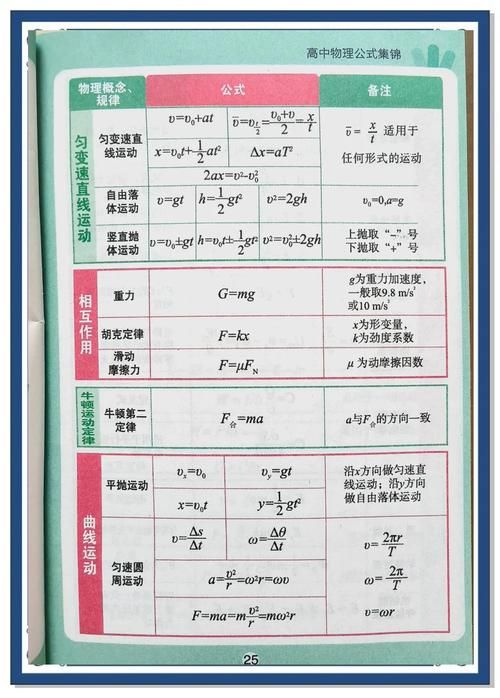 高中物理公式集锦
物理概念、规律 公式 备注
匀变速直线运动
匀变速直线运动
v=v₀+at v̄=v_{t/2}=(v₀+v)/2=x/t
x=v₀t+½at² Δx=aT²
2ax=v²-v₀²
v̄=x/t 适用于
任何形式的运动
自由落体运动 v=gt h=½gt² v²=2gh v₀=0,a=g
竖直抛体运动 v=v₀±gt h=v₀t±½gt² v²=v₀²±2gh
上抛取“-”号
下抛取“+”号
相互作用
重力 G=mg
g为重力加速度,
一般取9.8 m/s²
或10 m/s²
胡克定律 F=kx
x为形变量,
k为劲度系数
滑动摩擦力 F=μF_N μ为动摩擦因数
牛顿运动定律
牛顿第二定律 F合=ma a与F合的方向一致
曲线运动
平抛运动
vₓ=v₀ v_y=gt
x=v₀t y=½gt²
沿x方向做匀速直
线运动；沿y方向
做自由落体运动
匀速圆周运动
v=Δs/Δt ω=Δθ/Δt
a=v²/r=ω²r=ωv
F=ma=mv²/r=mω²r
v=2πr/T
ω=2π/T
v=ωr
25